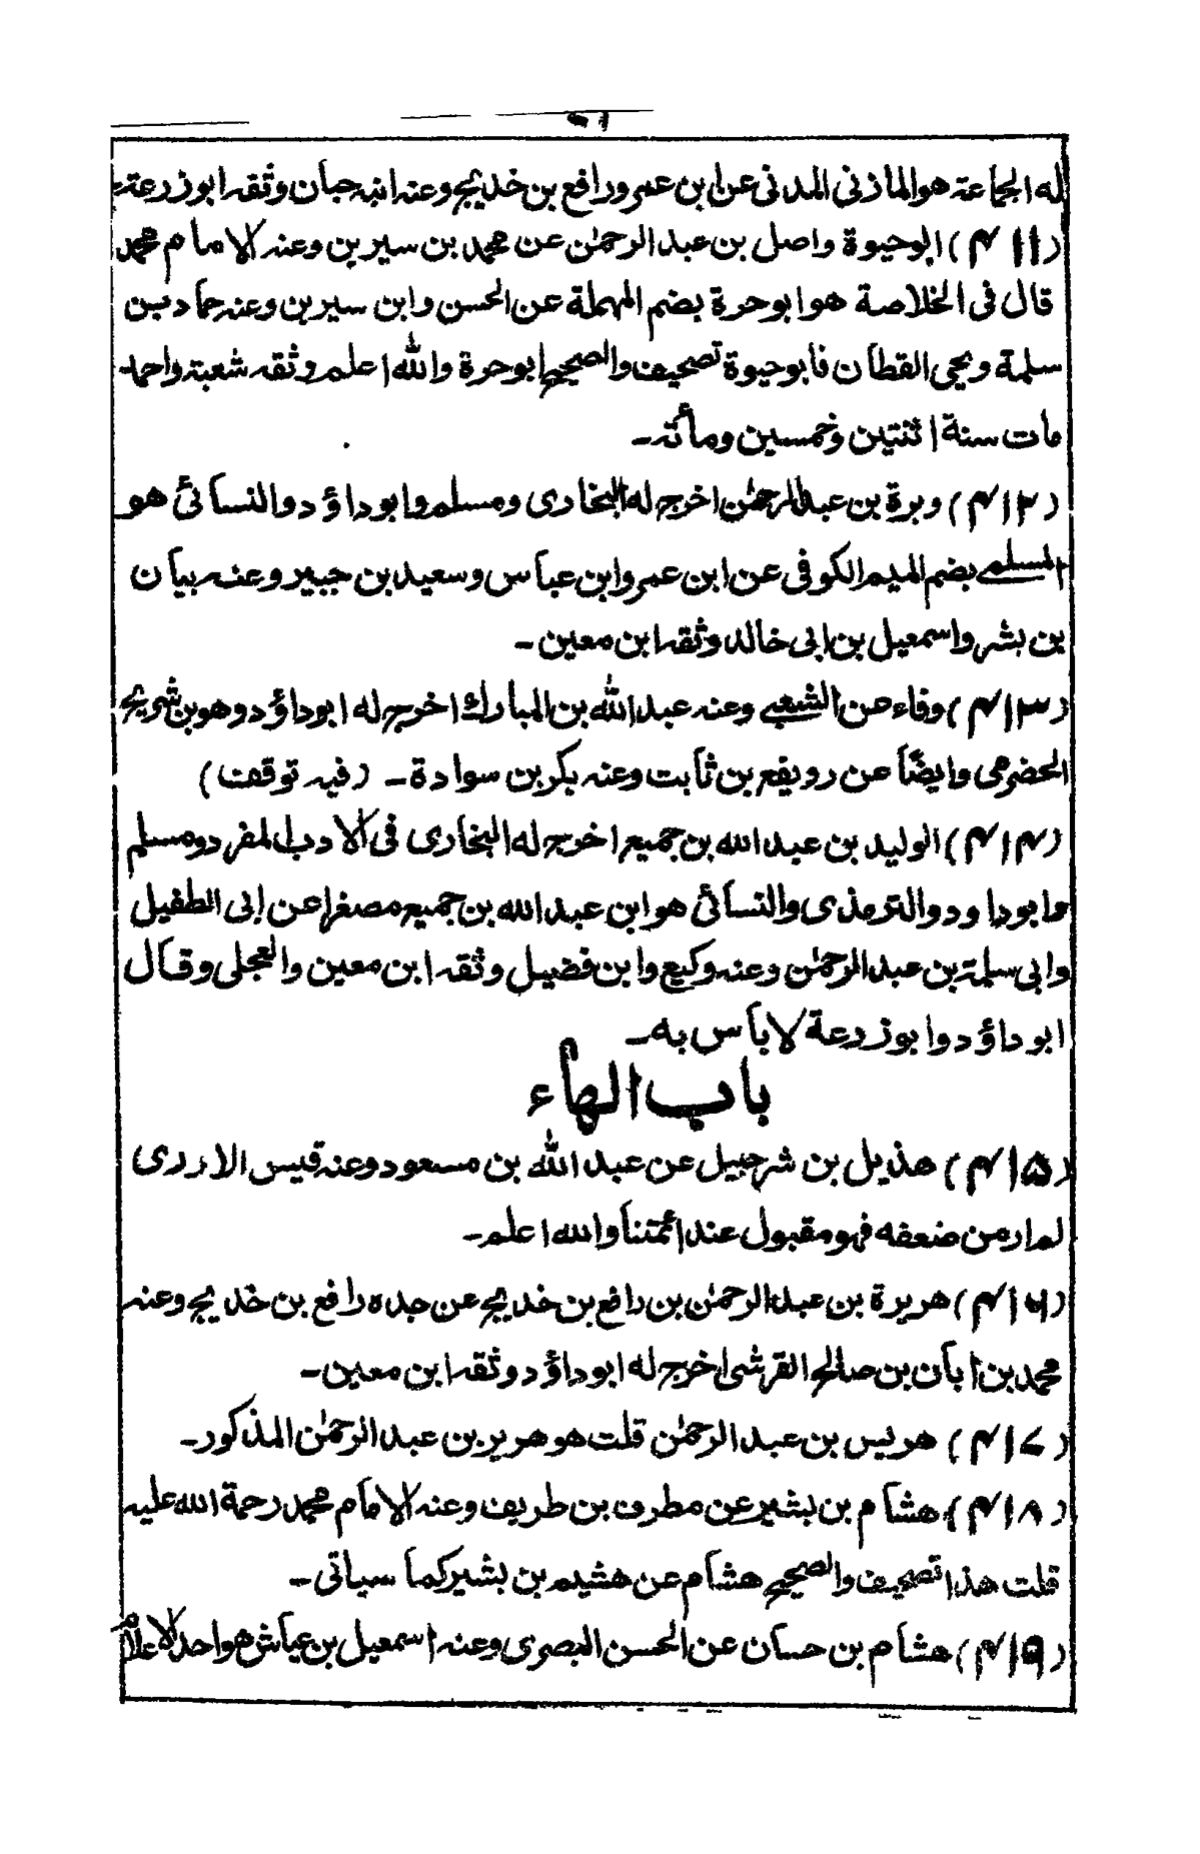 له الجماعة هو المازنى المدنى عن ابن عمر ورافع بن خديج وعنه ابنه حبان وثقه ابو زرعة
(۴۱۱) ابو حيوة واصل بن عبد الرحمٰن عن محمد بن سيرين وعنه الامام محمد
قال فى الخلاصة هو ابو حرة بضم المهملة عن الحسن وابن سيرين وعنه حماد بن
سلمة ويحيى القطان فأبو حيوة تصحيف والصحيح ابو حرة والله اعلم وثقه شعبة واحمد
مات سنة اثنتين وخمسين ومأته۔
(۴۱۲) وبرة بن عبد الرحمٰن اخرج له البخارى ومسلم وابو داؤد والنسائى هو
المسلمى بضم الميم الكوفى عن ابن عمر وابن عباس وسعيد بن جبير وعنه بيان
بن بشر واسمعيل بن ابى خالد وثقه ابن معين۔
(۴۱۳) وفاء عن الشعبى وعنه عبد الله بن المبارك اخرج له ابو داؤد وهو بن شريح
الحضرمى وايضًا عن رويفع بن ثابت وعنه بكر بن سوادة۔ (فيه توقف)
(۴۱۴) الوليد بن عبد الله بن جميع اخرج له البخارى فى الادب المفرد ومسلم
وابو داود والترمذى والنسائى هو ابن عبد الله بن جميع مصغرا عن ابى الطفيل
وابى سلمة بن عبد الرحمٰن وعنه وكيع وابن فضيل وثقه ابن معين والعجلى وقال
ابو داؤد وابو زرعة لا باس به۔
باب الهاء
(۴۱۵) هذيل بن شرحبيل عن عبد الله بن مسعود وعنه قيس الاردى
لم ار من ضعفه فهو مقبول عند ائمتنا والله اعلم۔
(۴۱۶) هريرة بن عبد الرحمٰن بن رافع بن خديج عن جده رافع بن خديج وعنه
محمد بن ابان بن صالح القرشى اخرج له ابو داؤد وثقه ابن معين۔
(۴۱۷) هريس بن عبد الرحمٰن قلت هو هرير بن عبد الرحمٰن المذكور۔
(۴۱۸) هشام بن بشير عن مطرف بن طريف وعنه الامام محمد رحمة الله عليه
قلت هذا تصحيف والصحيح هشام عن هشيم بن بشير كما سياتى۔
(۴۱۹) هشام بن حسان عن الحسن البصرى وعنه اسمعيل بن عياش هو احد الاعلام